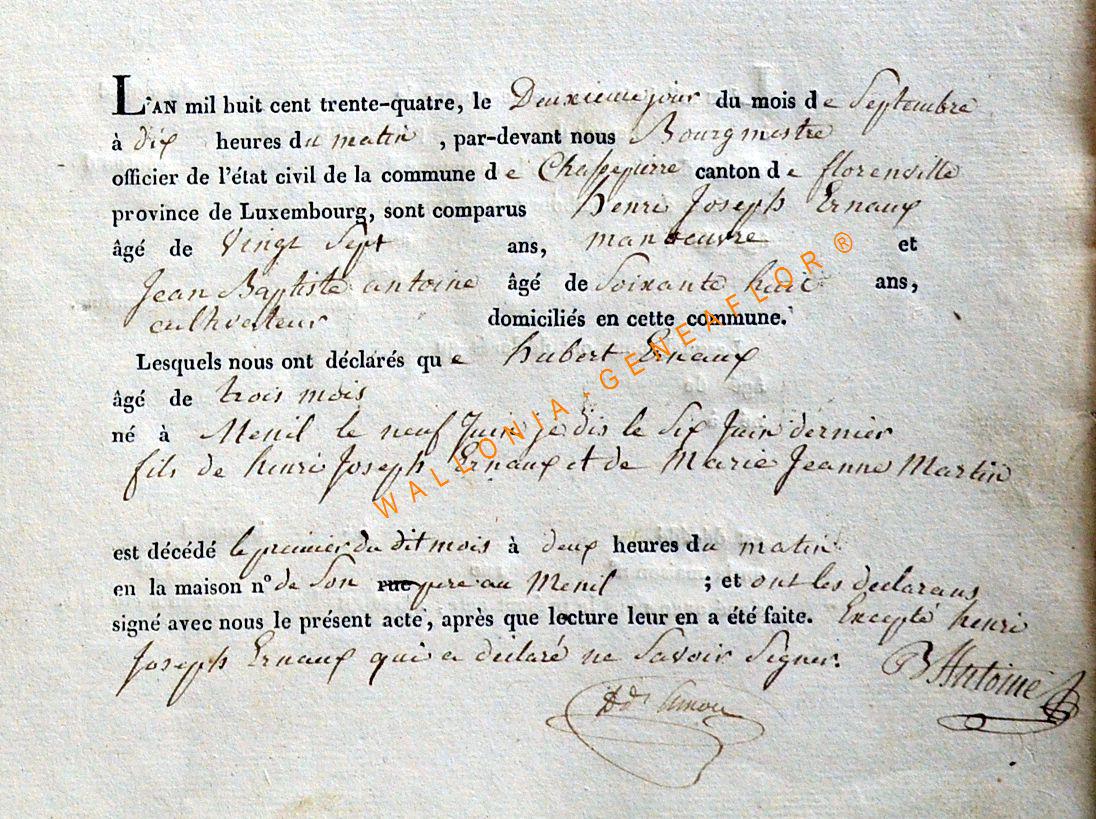 L'AN mil huit cent trente-quatre, le Deuxieme jour du mois de Septembre
à dix heures du matin, par-devant nous Bourgmestre
officier de l'état civil de la commune de Chassepierre canton de florenville
province de Luxembourg, sont comparus henri Joseph Ernaux
âgé de Vingt Sept ans, manoeuvre et
Jean Baptiste antoine âgé de Soixante huit ans,
cultivateur domiciliés en cette commune.
Lesquels nous ont déclarés que hubert Ernaux
âgé de trois mois
né à Menil le neuf Juin je dis le Six Juin dernier
fils de henri Joseph Ernaux et de Marie Jeanne Martin
est décédé le premier du dit mois à deux heures du matin
en la maison n° de Son rue pere au Menil ; et ont les declarans
signé avec nous le présent acte, après que lecture leur en a été faite. Excepté henri
Joseph Ernaux qui a declaré ne Savoir Signer.
JB Antoine
WALLONIA.GENEAFLOR ®